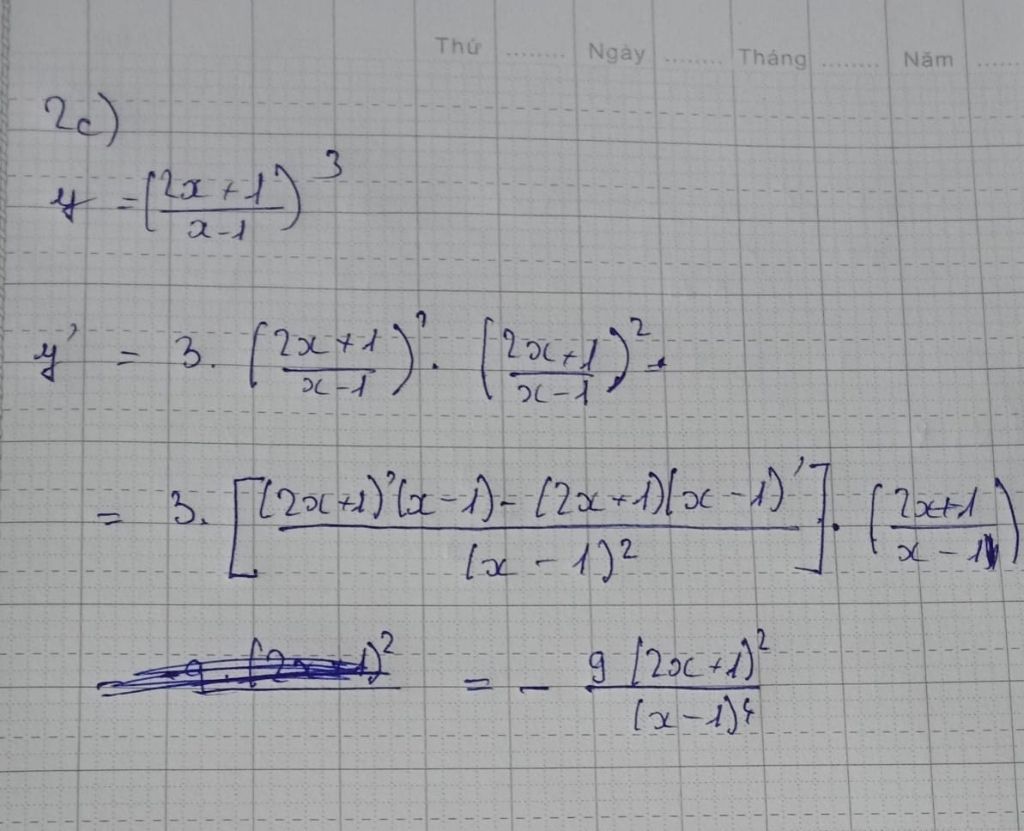 Thứ ........ Ngày ........ Tháng ........ Năm ......
2c)
y = (2x+1 / x-1)^3
y' = 3. (2x+1 / x-1)'. (2x+1 / x-1)^2
= 3. [(2x+1)'(x-1) - (2x+1)(x-1)' / (x-1)^2]. (2x+1 / x-1)
= - 9 (2x+1)^2 / (x-1)^4